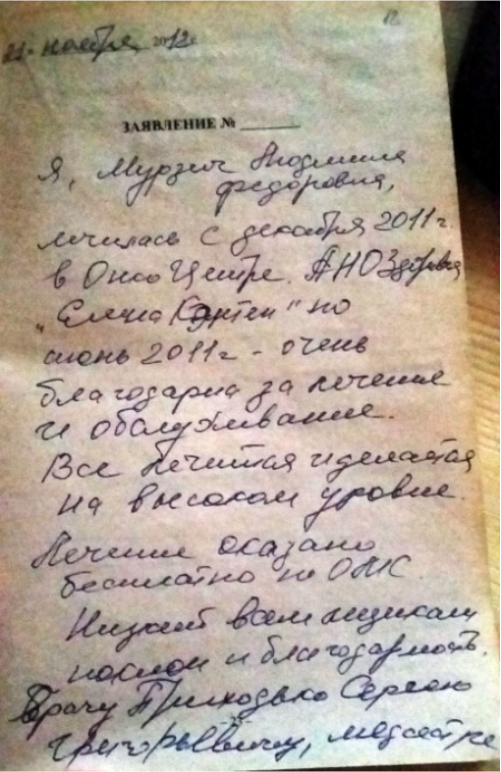 12
21 ноября 2012г.
ЗАЯВЛЕНИЕ №
Я, Мурзич Людмила
Федоровна,
лечилась с декабря 2011г.
в ОнкоЦентре. АНО Здоровья
"Елена Кантен" по
июнь 2011г - очень
благодарна за лечение
и обслуживание.
Все лечится и делается
на высоком уровне.
Лечение оказано
бесплатно по ОМС.
Низкий вам
поклон и благодарность.
Врачу Приходько Сергею
Григорьевичу, медсестре